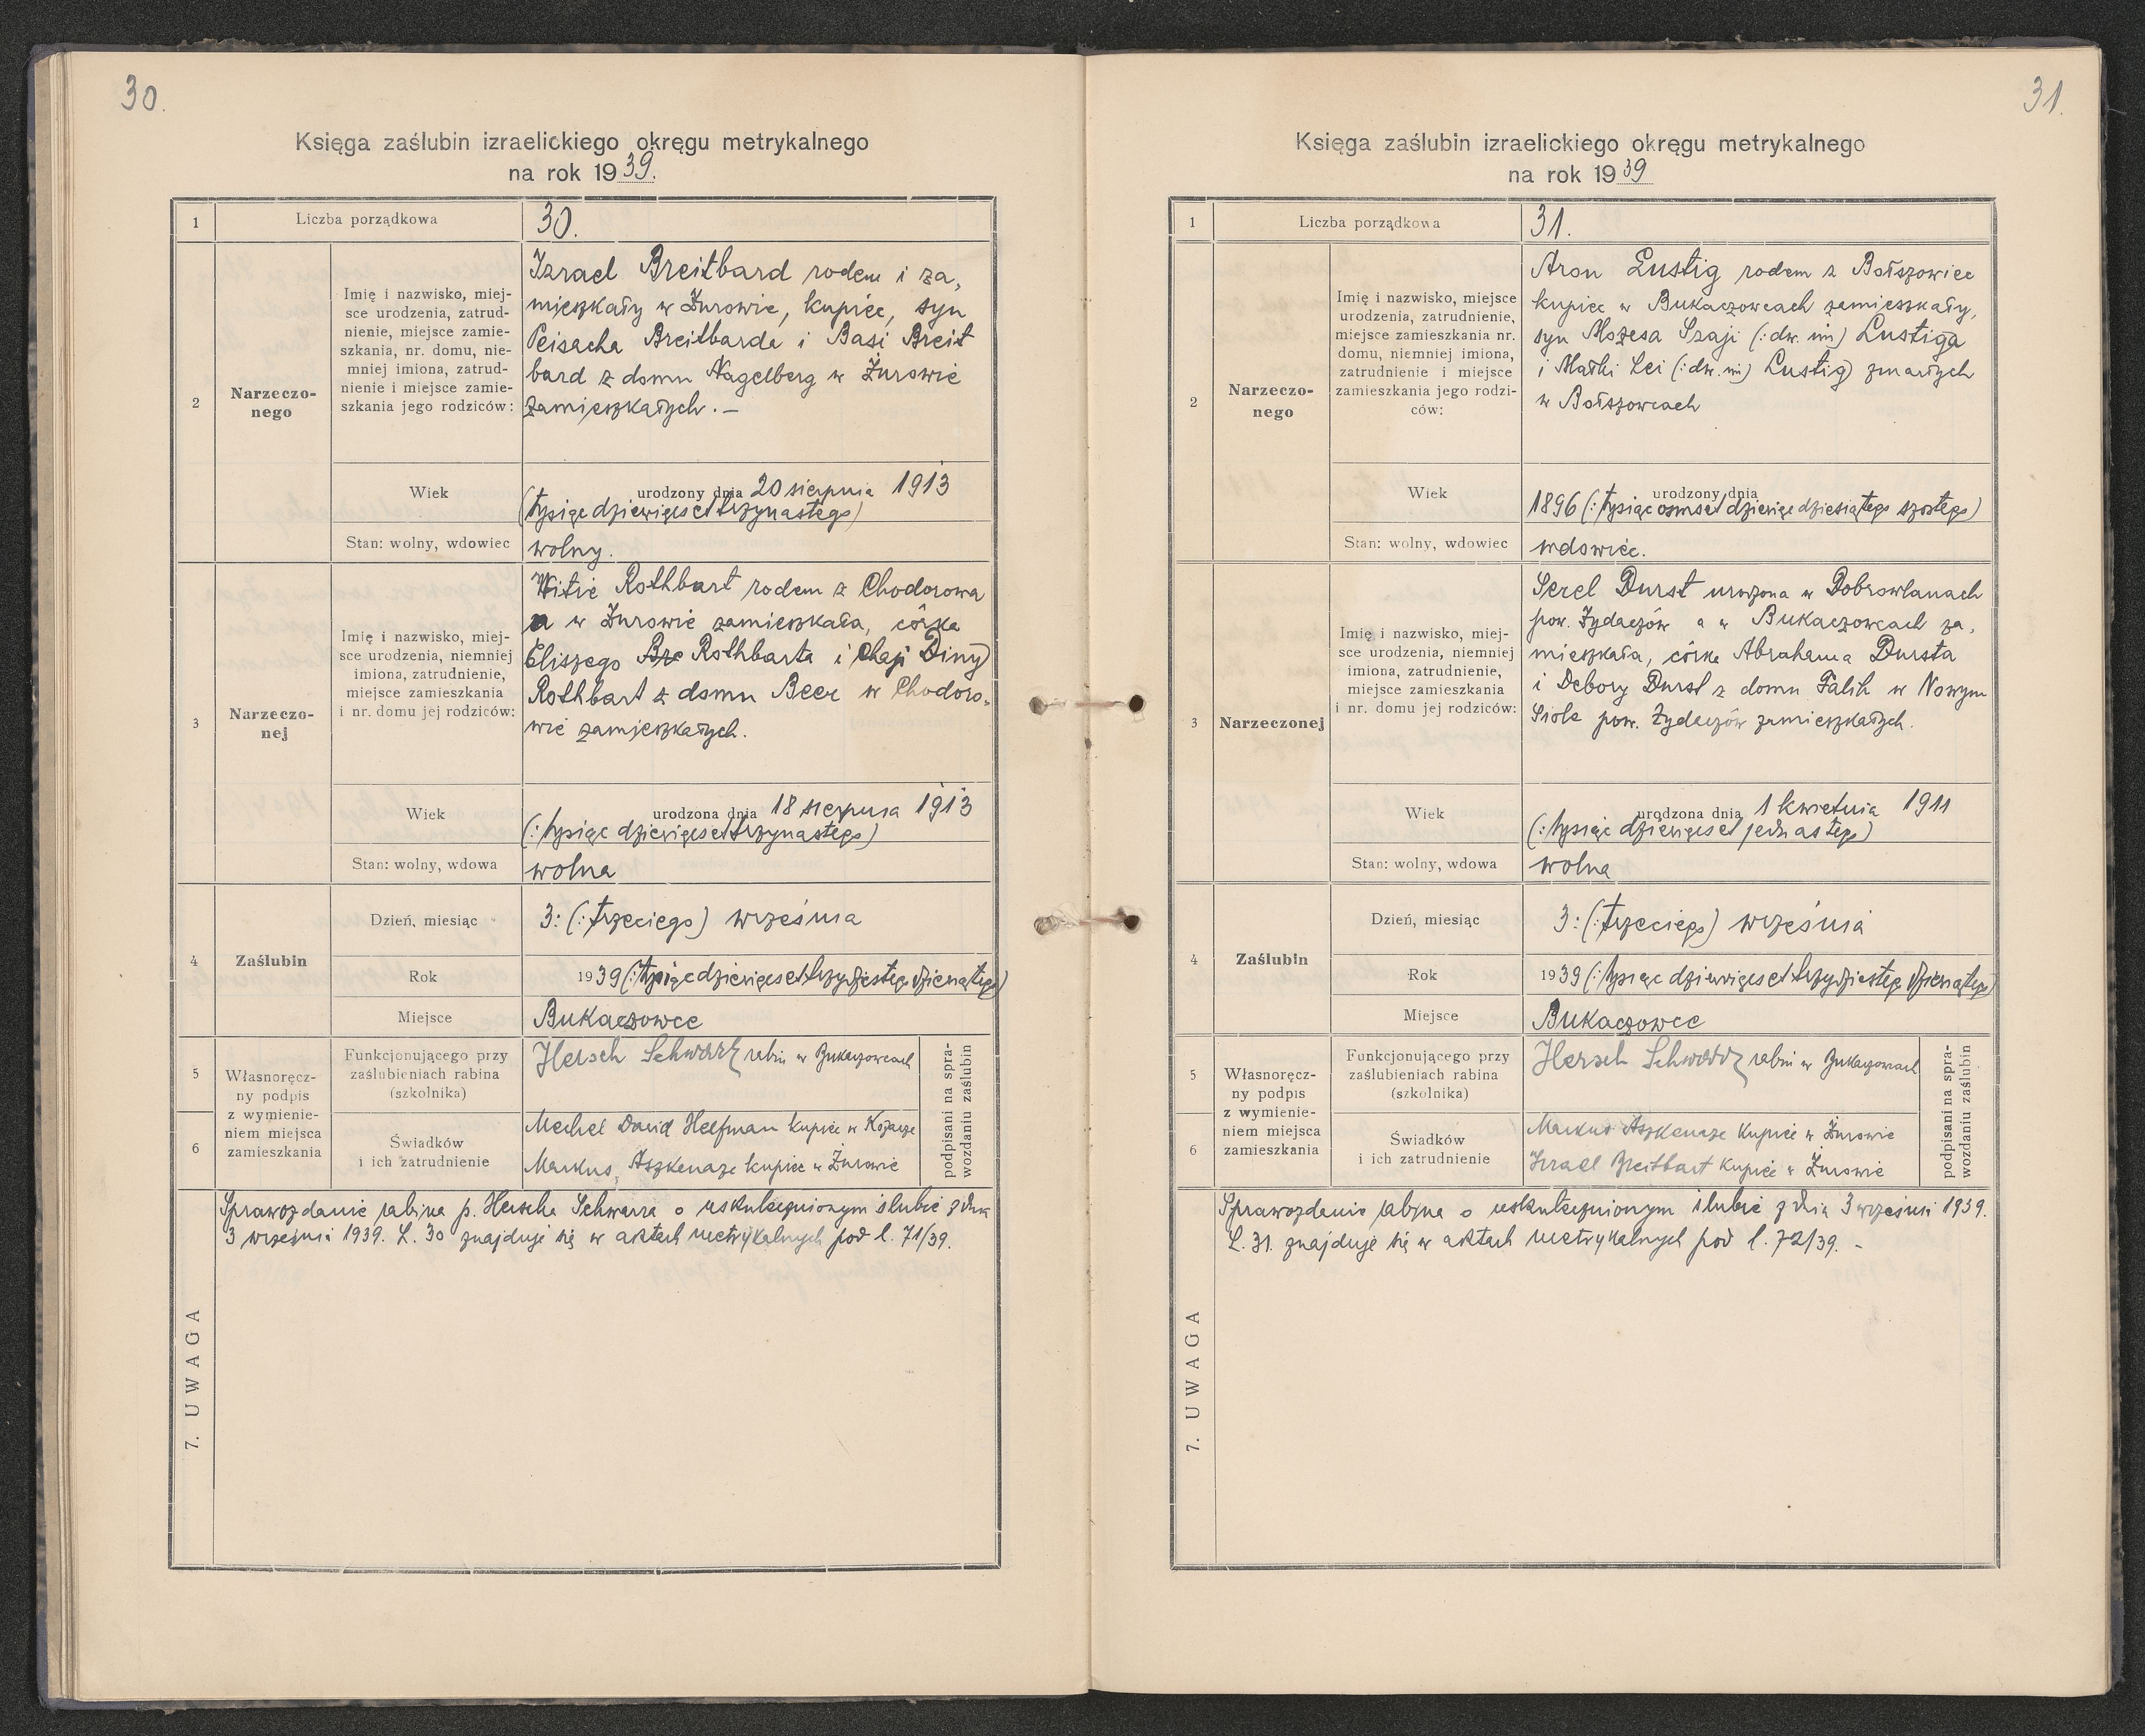 30.
Księga zaślubin izraelickiego okręgu metrykalnego
na rok 1939.
1
Liczba porządkowa
30.
2
Narzeczo-
nego
Imię i nazwisko, miej-
sce urodzenia, zatrud-
nienie, miejsce zamie-
szkania, nr. domu, nie-
mniej imiona, zatrud-
nienie i miejsce zamie-
szkania jego rodziców:
Izrael Breitbard rodem i za,
mieszkały w Żurowie, kupiec, syn
Peisacha Breitbarda i Basi Breit
bard z domu Nagelberg w Żurowie
zamieszkałych. —
Wiek
urodzony dnia 20 sierpnia 1913
(tysiąc dziewięćset trzynastego)
Stan: wolny, wdowiec
wolny.
3
Narzeczo-
nej
Imię i nazwisko, miej-
sce urodzenia, niemniej
imiona, zatrudnienie,
miejsce zamieszkania
i nr. domu jej rodziców:
Witie Rothbart rodem z Chodorowa
a w Żurowie zamieszkała, córka
Eliszego Bre Rothbarta i Chaji Diny
Rothbart z domu Beer w Chodoro-
wie zamieszkałych.
Wiek
urodzona dnia 18 sierpnia 1913
(: tysiąc dziewięćset trzynastego)
Stan: wolny, wdowa
wolna
4
Zaślubin
Dzień, miesiąc
3: (: trzeciego) września
Rok
1939 (: tysiąc dziewięćset trzydziestego dziewiątego)
Miejsce
Bukaczowce
5
6
Własnoręcz-
ny podpis
z wymienie-
niem miejsca
zamieszkania
Funkcjonującego przy
zaślubieniach rabina
(szkolnika)
Hersch Schwarz rabin w Bukaczowcach
Świadków
i ich zatrudnienie
Mechel David Helfman kupiec w
Markus Aszkenaze kupiec w Żurowie
podpisani na spra-
wozdaniu zaślubin
7. UWAGA
Sprawozdanie rabina p. Herscha Schwarza o uskutecznionym ślubie z dnia
3 września 1939. L. 30 znajduje się w aktach metrykalnych pod l. 71/39.
31.
Księga zaślubin izraelickiego okręgu metrykalnego
na rok 1939
1
Liczba porządkowa
31.
2
Narzeczo-
nego
Imię i nazwisko, miejsce
urodzenia, zatrudnienie,
miejsce zamieszkania nr.
domu, niemniej imiona,
zatrudnienie i miejsce
zamieszkania jego rodzi-
ców:
Aron Lustig rodem z Bołszowiec
kupiec w Bukaczowcach zamieszkały,
syn Mozesa Szaji (: dw. im) Lustiga
i Małki Lei (: dw. im) Lustig) zmarłych
w Bołszowcach
Wiek
urodzony dnia
1896 (: tysiąc osmset dziewięćdziesiątego szóstego)
Stan: wolny, wdowiec
wdowiec.
3
Narzeczonej
Imię i nazwisko, miej-
sce urodzenia, niemniej
imiona, zatrudnienie,
miejsce zamieszkania
i nr. domu jej rodziców:
Serel Durst urodzona w Dobrowlanach
pow. Żydaczów a w Bukaczowcach za,
mieszkała, córka Abrahama Dursta
i Debory Durst z domu Falik w Nowym
Siole pow. Żydaczów zamieszkałych.
Wiek
urodzona dnia 1 kwietnia 1911
(: tysiąc dziewięćset jednastego)
Stan: wolny, wdowa
wolna
4
Zaślubin
Dzień, miesiąc
3: (: trzeciego) września
Rok
1939 (: tysiąc dziewięćset trzydziestego dziewiątego)
Miejsce
Bukaczowce
5
6
Własnoręcz-
ny podpis
z wymienie-
niem miejsca
zamieszkania
Funkcjonującego przy
zaślubieniach rabina
(szkolnika)
Hersch Schwarz rabin w Bukaczowcach
Świadków
i ich zatrudnienie
Markus Aszkenaze kupiec w Żurowie
Izrael Breitbart kupiec w Żurowie
podpisani na spra-
wozdaniu zaślubin
7. UWAGA
Sprawozdanie rabina o uskutecznionym ślubie z dnia 3 wrześni 1939.
L. 31. znajduje się w aktach metrykalnych pod l. 72/39. –